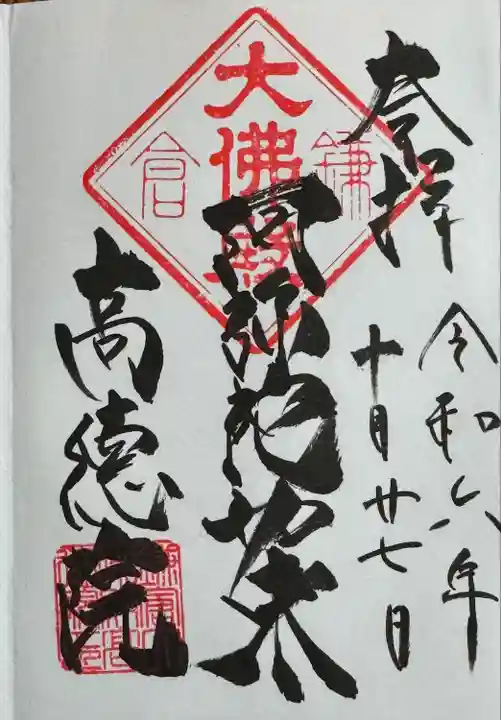 奉拝
令和六年
十月廿七日
鎌倉
大佛殿
阿弥陀如来
高徳院